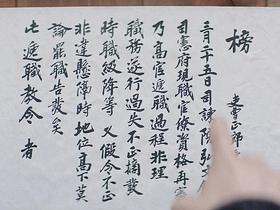 榜
吏曹正郎
三月二十五日司諫院弘文
司憲府現職官僚資格再
乃高官遞職過程非理
職務遂行過失不正摘發
時職級降等 又假令不正
非違懸時地位高下莫
論罷職告發矣
此遞職教令 者